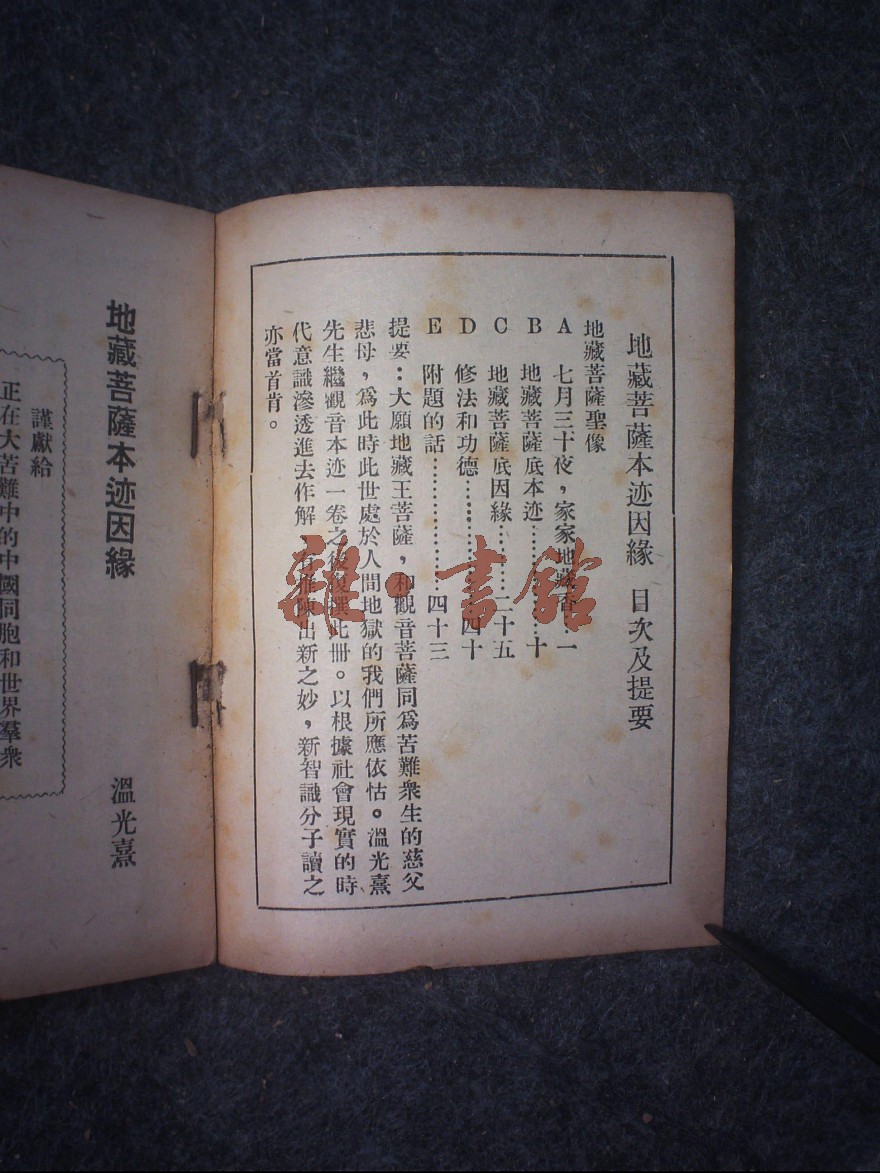 地藏菩薩本迹因緣　目次及提要
地藏菩薩聖像
A　七月三十夜，家家地藏香…一
B　地藏菩薩底本迹………十
C　地藏菩薩底因緣………二十五
D　修法和功德………四十
E　附題的話………四十三
提要：大願地藏王菩薩，和觀音菩薩同爲苦難衆生的慈父
悲母，爲此時此世處於人間地獄的我們所應依怙。溫光熹
先生繼觀音本迹一卷之後復撰此册。以根據社會現實的時
代意識滲透進去作解　有推陳出新之妙，新智識分子讀之
亦當首肯。
地藏菩薩本迹因緣
溫光熹
謹獻給
正在大苦難中的中國同胞和世界羣衆
雜·書館